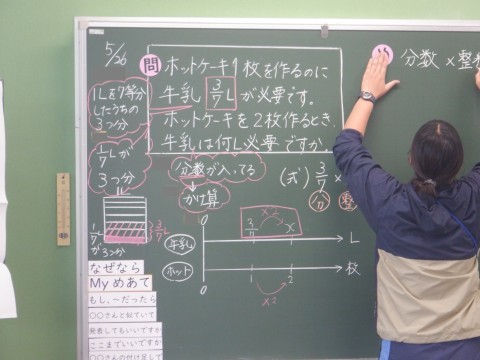 5/26
問 ホットケーキ1枚を作るのに
牛乳 3/7 L が必要です。
ホットケーキを2枚作るとき、
牛乳は何L必要ですか。
1Lを7等分
したうちの
3つ分
1/7 Lが
3つ分
分数が入ってる
かけ算
(式) 3/7 ×
分 整
分数×整
1/7が
3つ分
3/7 L
牛乳
0
3/7
×2
x
L
ホット
0
1
2
枚
×2
なぜなら
Myめあて
もし、~だったら
○○さんと似ていて
発表してもいいですか
ここまでいいですか
○○さんの付け足しで